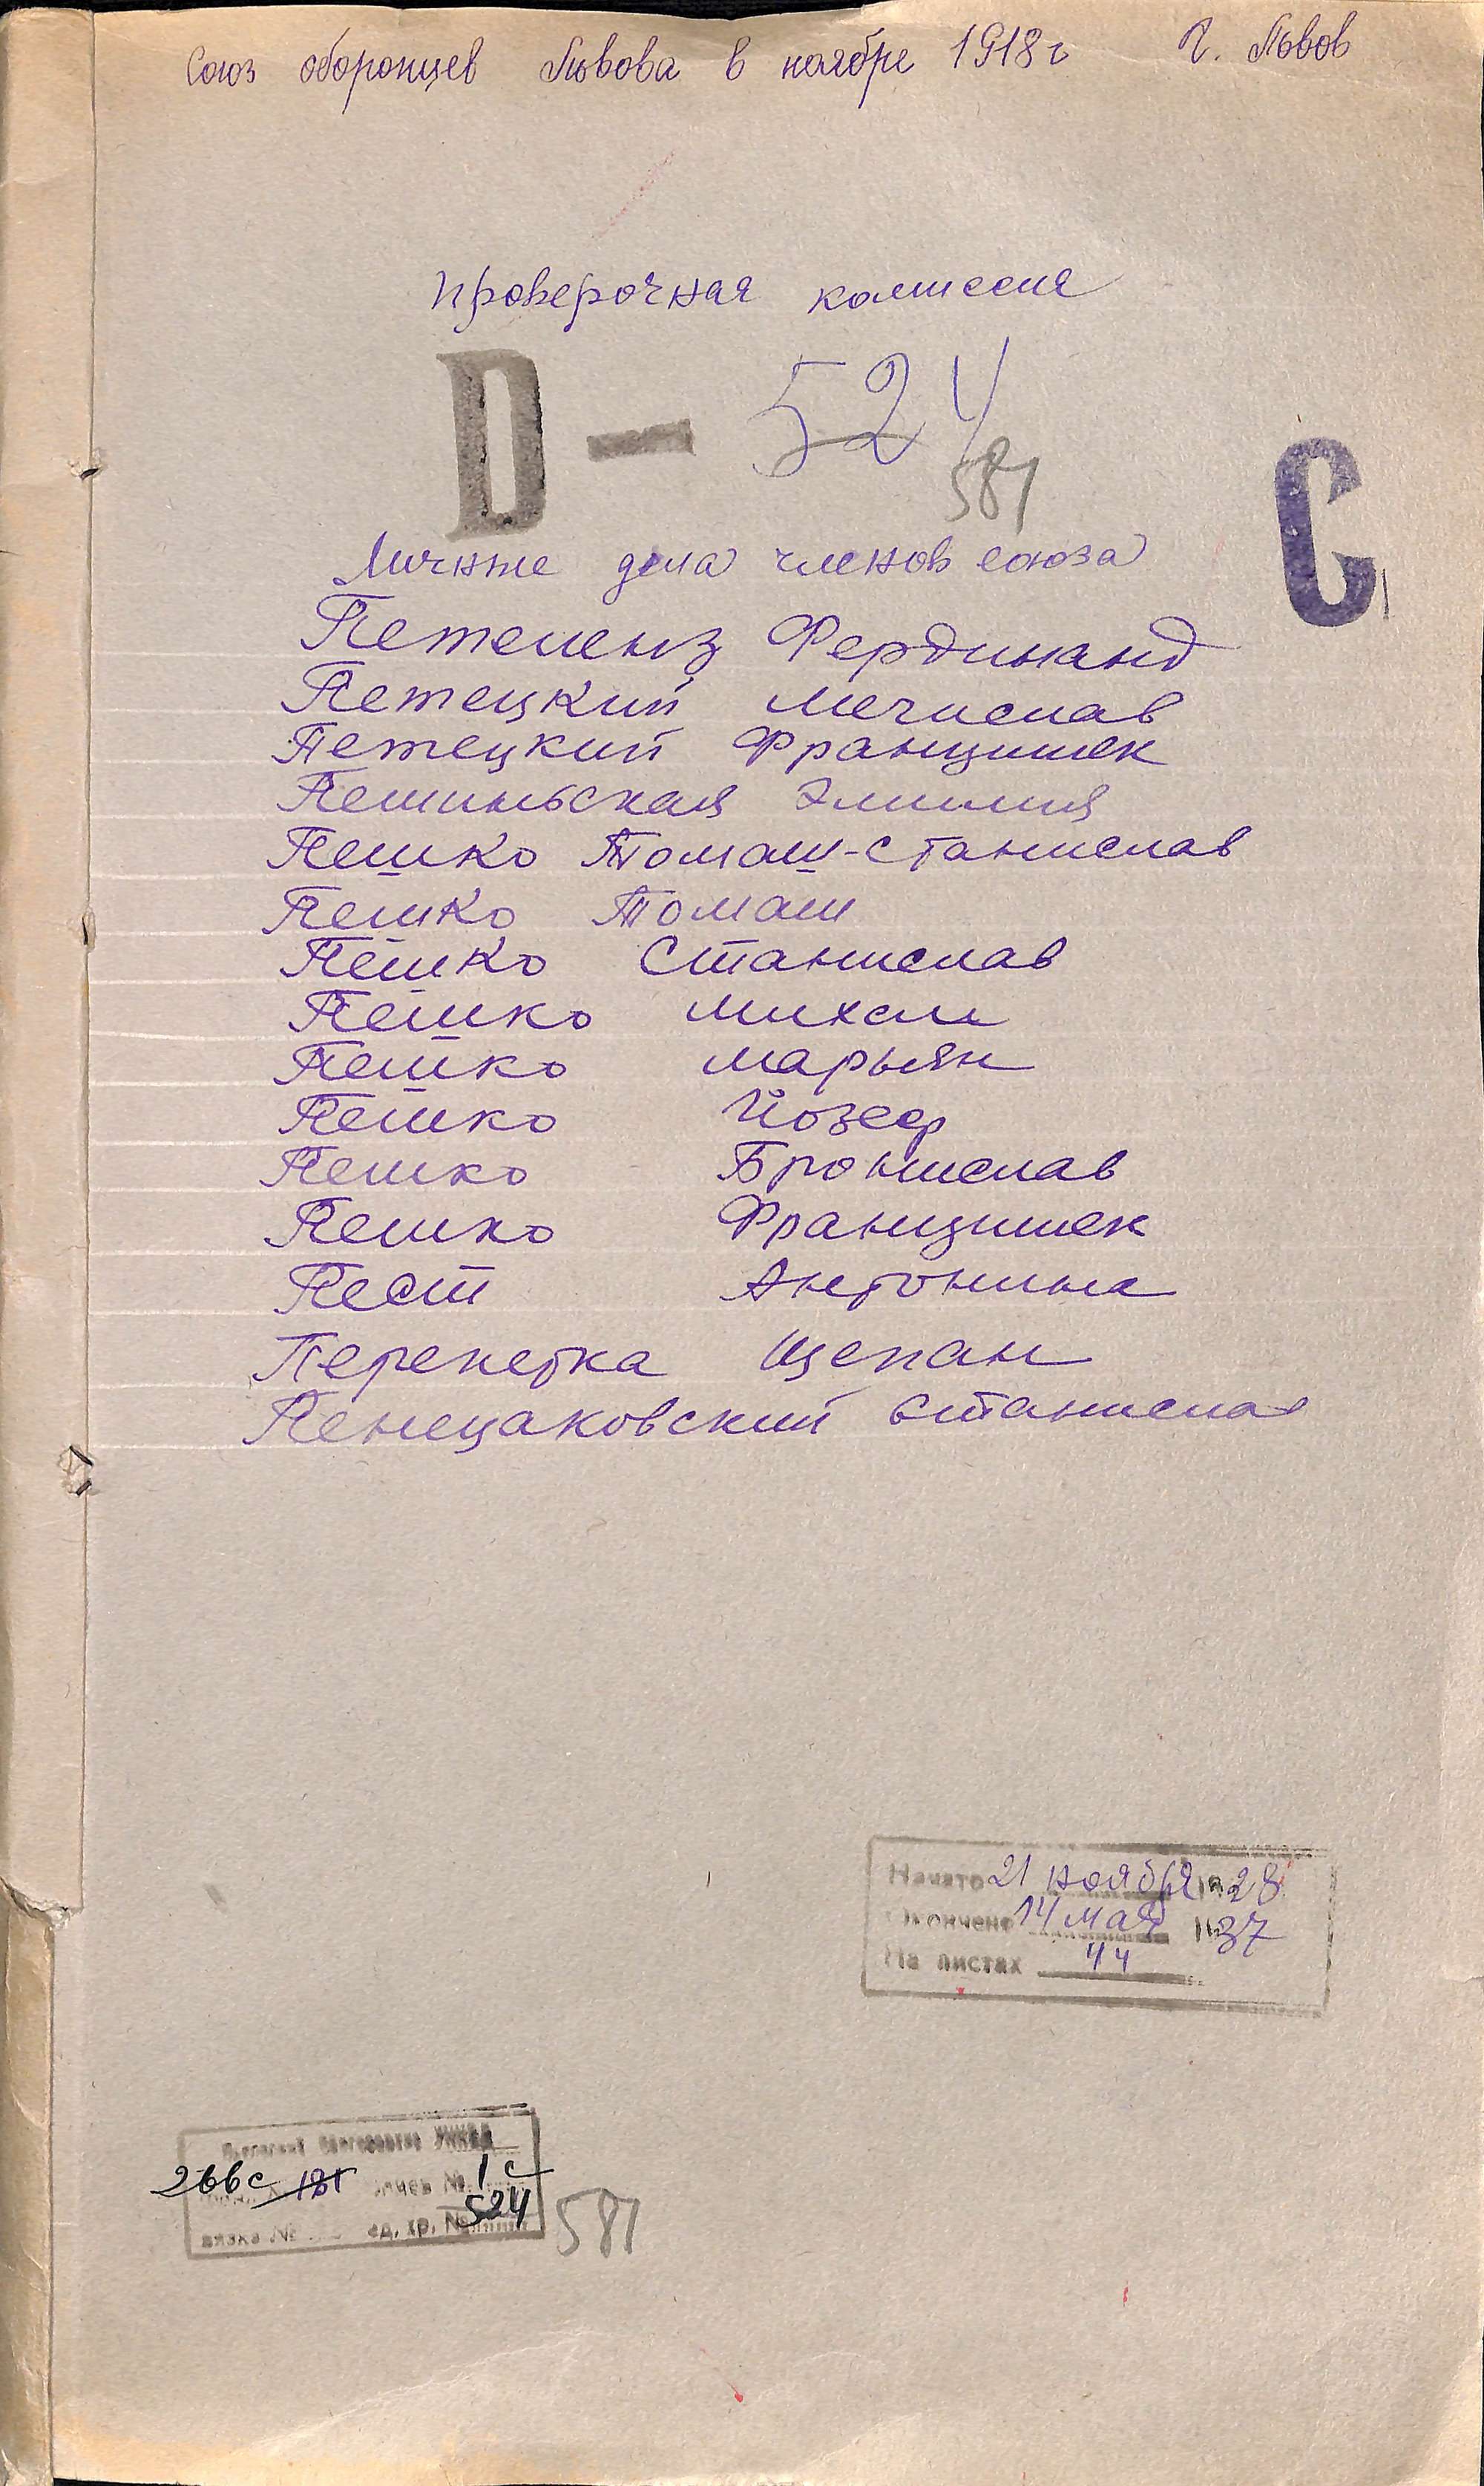 Союз оборонцев Львова в ноябре 1918 г г. Львов
Проверочная комиссия
D — 524
581
C
Личные дела членов союза
Петеленз Фердинанд
Петецкий Мечислав
Петецкий Францишек
Пешиньская Эмилия
Пешко Томаш-Станислав
Пешко Томаш
Пешко Станислав
Пешко Михал
Пешко Марьян
Пешко Йозеф
Пешко Бронислав
Пешко Францишек
Пест Антонина
Перепетка Щепан
Пенецаковский Станислав
Начато 21 ноября 1928
Окончено 14 мая 1937
На листах 44
266с 181 №. 1с
вязка № ед. хр. № 524
581